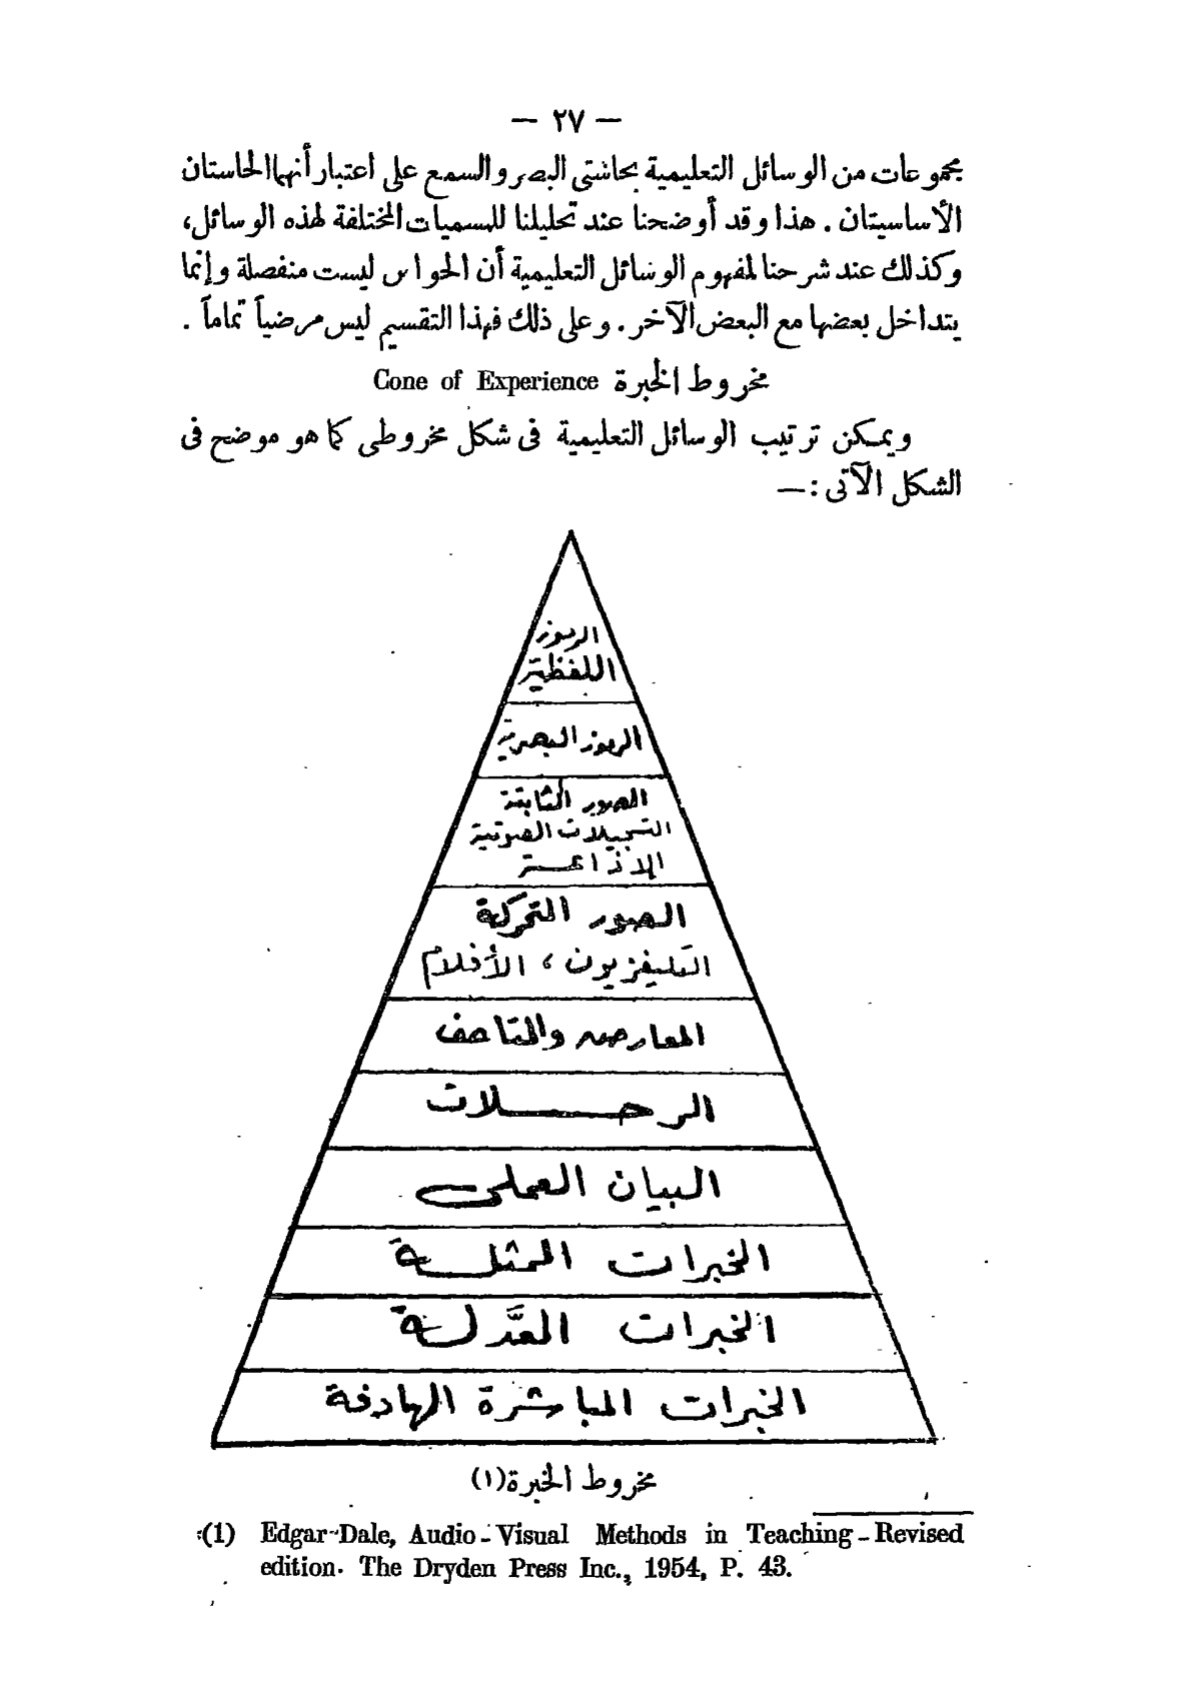 — ٢٧ —
مجموعات من الوسائل التعليمية بحاستى البصر والسمع على اعتبار أنهما الحاستان
الأساسيتان . هذا وقد أوضحنا عند تحليلنا للسميات المختلفة لهذه الوسائل،
وكذلك عند شرحنا لمفهوم الوسائل التعليمية أن الحواس ليست منفصلة وإنما
يتداخل بعضها مع البعض الآخر . وعلى ذلك فهذا التقسيم ليس مرضياً تماماً .
مخروط الخبرة Cone of Experience
ويمكن ترتيب الوسائل التعليمية فى شكل مخروطى كما هو موضح فى
الشكل الآتى : —
الرموز
اللفظية
الرموز البصرية
الصور الثابتة
التسجيلات الصوتية
الإذاعة
الصور المتحركة
التليفزيون ، الأفلام
المعارض والمتاحف
الرحلات
البيان العملى
الخبرات الممثلة
الخبرات المعدَّلة
الخبرات المباشرة الهادفة
مخروط الخبرة(١)
(1) Edgar-Dale, Audio-Visual Methods in Teaching-Revised
edition. The Dryden Press Inc., 1954, P. 43.